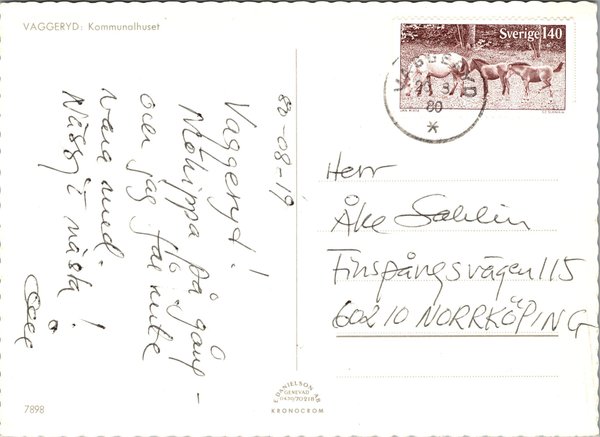 VAGGERYD: Kommunalhuset
Sverige 140
VAGGERYD
80
80-08-19
Vaggeryd!
på gång -
och jag får inte
vara med.
i nästa!
Herr
Åke Sahlin
Finspångsvägen 115
602 10 NORRKÖPING
7898
E. DANIELSON AB
GENEVAD
0430/70218
KRONOCROM